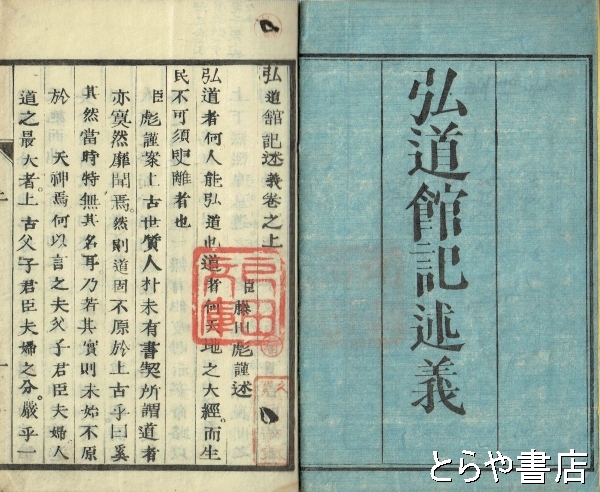 弘道館記述義
弘道館記述義卷之上
臣藤田彪謹述
弘道者何人能弘道也道者何天地之大經而生
民不可須臾離者也
臣彪謹案上古世質人朴未有書契所謂道者
亦寞然靡聞焉然則道固不原於上古乎曰奚
其然當時特無其名耳乃若其實則未始不原
於天神焉何以言之夫父子君臣夫婦人
道之最大者上古父子君臣夫婦之分嚴乎一
とらや書店